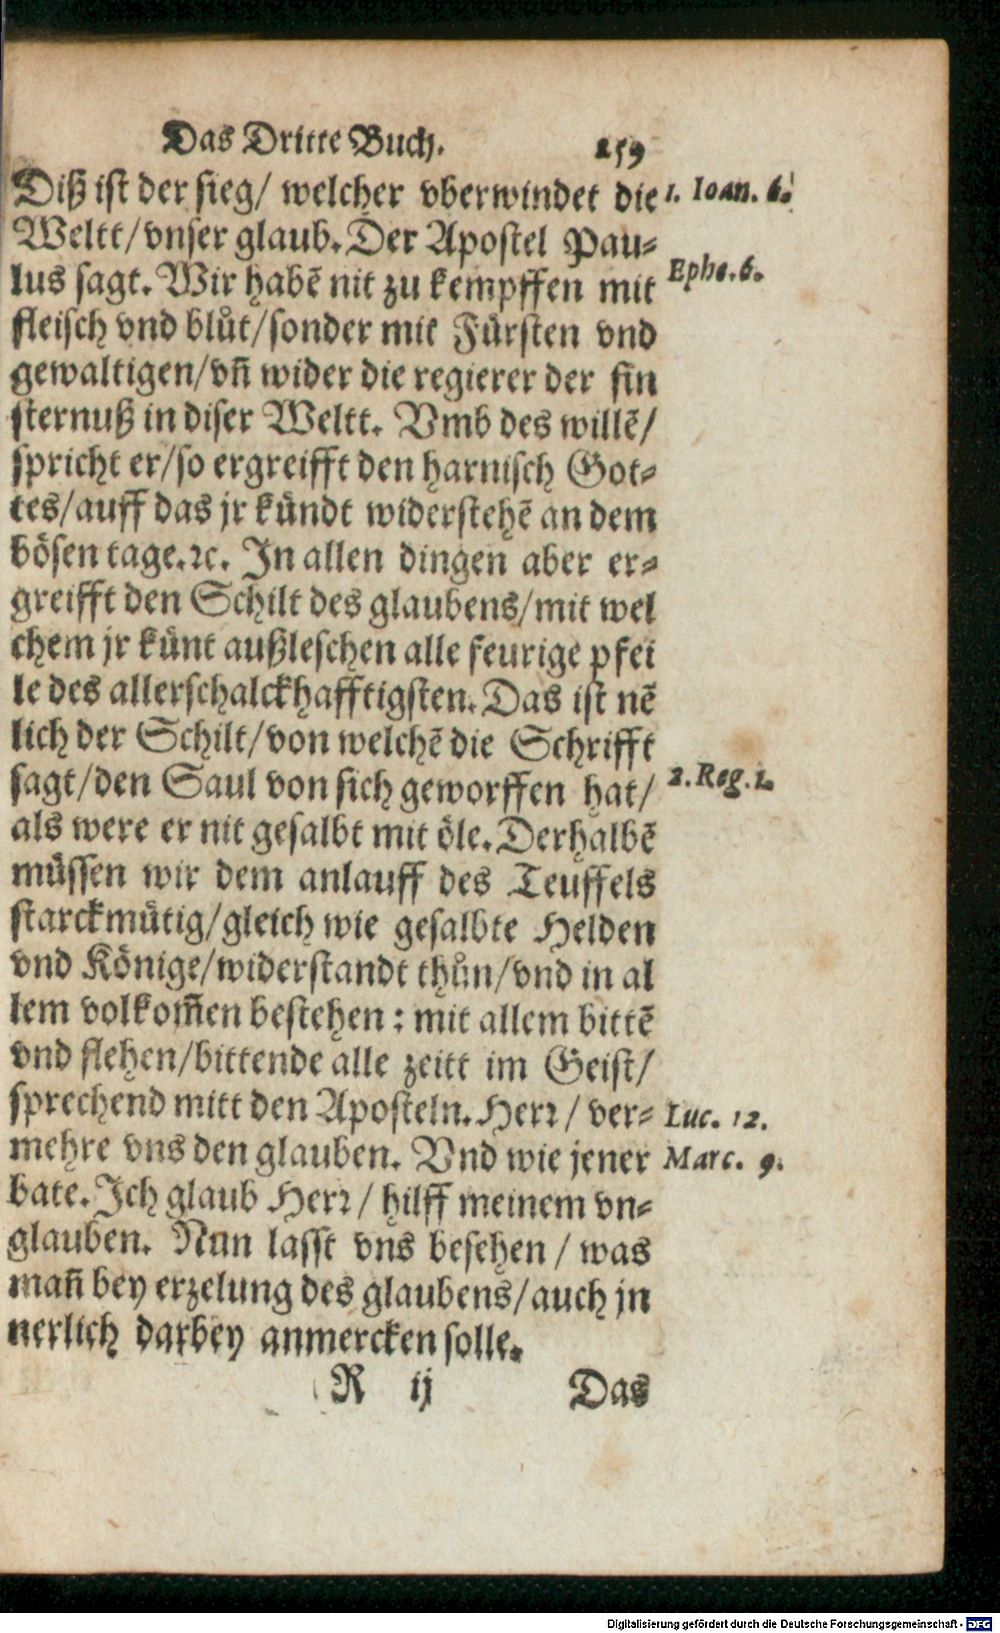 Das Dritte Buch. 259
Diß ist der sieg/ welcher vberwindet die 1. Ioan. 6.
Weltt/vnser glaub. Der Apostel Pau⸗
lus sagt. Wir habē nit zu kempffen mit Ephe. 6.
fleisch vnd blůt/sonder mit Fürsten vnd
gewaltigen/vn̄ wider die regierer der fin
sternuß in diser Weltt. Vmb des willē/
spricht er/so ergreifft den harnisch Got⸗
tes/auff das jr kündt widerstehē an dem
bösen tage.ꝛc. In allen dingen aber er⸗
greifft den Schilt des glaubens/mit wel
chem jr künt außleschen alle feurige pfei
le des allerschalckhafftigsten. Das ist nē
lich der Schilt/von welchē die Schrifft
sagt/den Saul von sich geworffen hat/ 2. Reg. 1.
als were er nit gesalbt mit öle. Derhalbē
müssen wir dem anlauff des Teuffels
starckmütig/gleich wie gesalbte Helden
vnd Könige/widerstandt thůn/vnd in al
lem volkom̄en bestehen: mit allem bittē
vnd flehen/bittende alle zeitt im Geist/
sprechend mitt den Aposteln. Herr/ ver⸗ Luc. 12.
mehre vns den glauben. Vnd wie jener Marc. 9.
bate. Ich glaub Herr/ hilff meinem vn⸗
glauben. Nun lasst vns besehen/ was
man̄ bey erzelung des glaubens/auch jn
nerlich darbey anmercken solle.
R ij Das
Digitalisierung gefördert durch die Deutsche Forschungsgemeinschaft - DFG